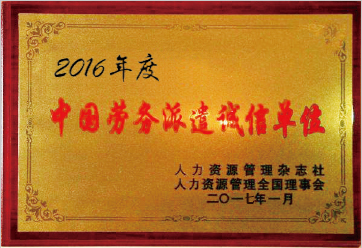 2016年度
中国劳务派遣诚信单位
人力资源管理杂志社
人力资源管理全国理事会
二〇一七年一月